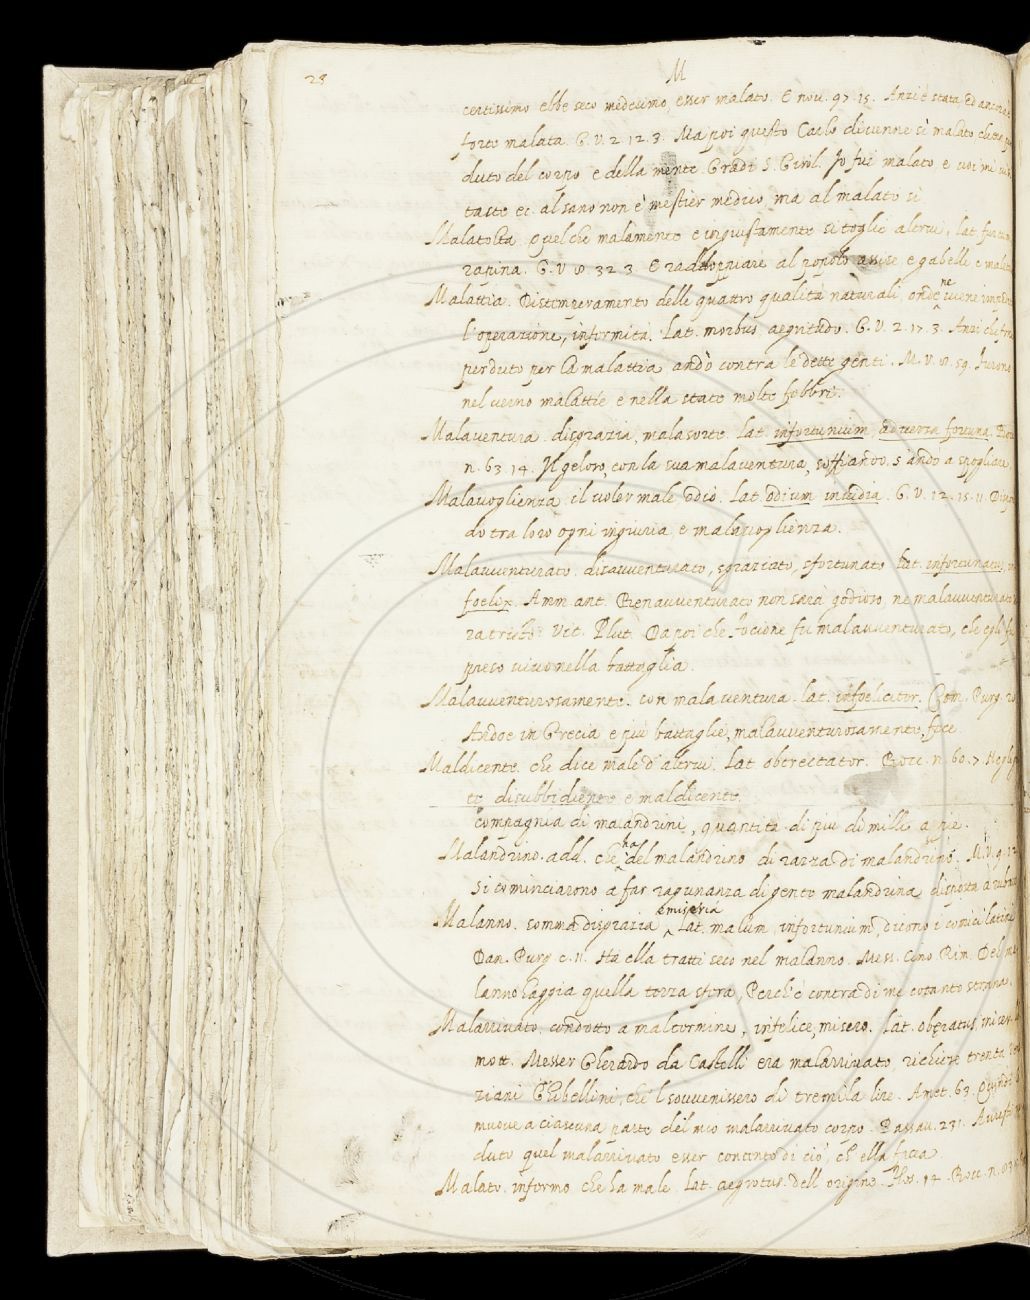 28
M
certissimo ebbe seco medesimo esser malato. E nov. 97. 15. Anzi è stata ed ancora è
forte malata. G. V. 2. 12. 3. Ma poi questo Carlo divenne sì malato che era per
duto del corpo e della mente. Gradi S. Girol. Io fui malato e voi mi visi
taste ec. al sano non è mestier medico ma al malato sì
Malatolta. Quel che malamente e ingiustamente si toglie altrui, lat. furtum
rapina. G. V. 8. 32. 3. E raddoppiare al popolo assise e gabelle e male
Malattia. Distemperamento delle quattro qualità naturali, onde ne viene impedita
l'operazione, infermità. Lat. morbus, aegritudo. G. V. 2. 17. 3. Anzi che fosse
perduto per la malattia andò contra le dette genti. M. V. 8. 59. furono
nel verno malattie e nella state molte febbri.
Malaventura. disgrazia, mala sorte. Lat. infortunium, adversa fortuna. Bocc.
n. 63. 14. Il geloso, con la sua malaventura, soffiando s'andò a spogliare
Malavoglienza. il voler male, odio. Lat. odium invidia. G. V. 12. 15. 11.
do tra loro ogni ingiuria e malavoglienza.
Malavventurato. disavventurato, sgraziato, sfortunato. Lat. infortunatus, in
foelix. Amm. ant. Benavventurato non sarà godioso, ne malavventurato
ra tristo. Vit. Plut. Da poi che Focione fu malavventurato, che egli fu
preso vivo nella battaglia.
Malavventurosamente. con mala ventura. lat. infoeliciter. Com. Purg. 20
Andoe in Grecia e più battaglie, malavventurosamente, fece
Maldicente. che dice male d'altrui. Lat. obtrectator. Bocc. n. 60. 7. Neglige
te disubbidiente e maldicente.
compagnia di malandrini, quantità di più di mille a pie.
Malandrino. add. che ha del malandrino di razza di malandrino. M. V. 9.
si cominciarono a far ragunanza di gente malandrina disposta a rubare
Malanno. somma disgrazia e miseria Lat. malum, infortunium, dicono i comici latini
Dan. Purg. c. 11. Ha ella tratti seco nel malanno. Mess. Cino. Rim. Del ma
lanno haggia quella terza sfera, Perch'è contra di me cotanto strana.
Malarrivato. condotto a mal termine, infelice, misero. Lat. obaeratus, miser.
mort. Messer Gherardo da Castelli era malarrivato, richiese trenta
ziani Ghibellini, che 'l sovvenissero di tremila lire. Amet. 63. Quindi
muove a ciascuna parte del mio malarrivato corpo. Passav. 231.
duto quel malarrivato esser contento di ciò, ch'ella facia.
Malato. infermo che ha male. Lat. aegrotus. dell'origine. Flos. 14. Bocc. n.